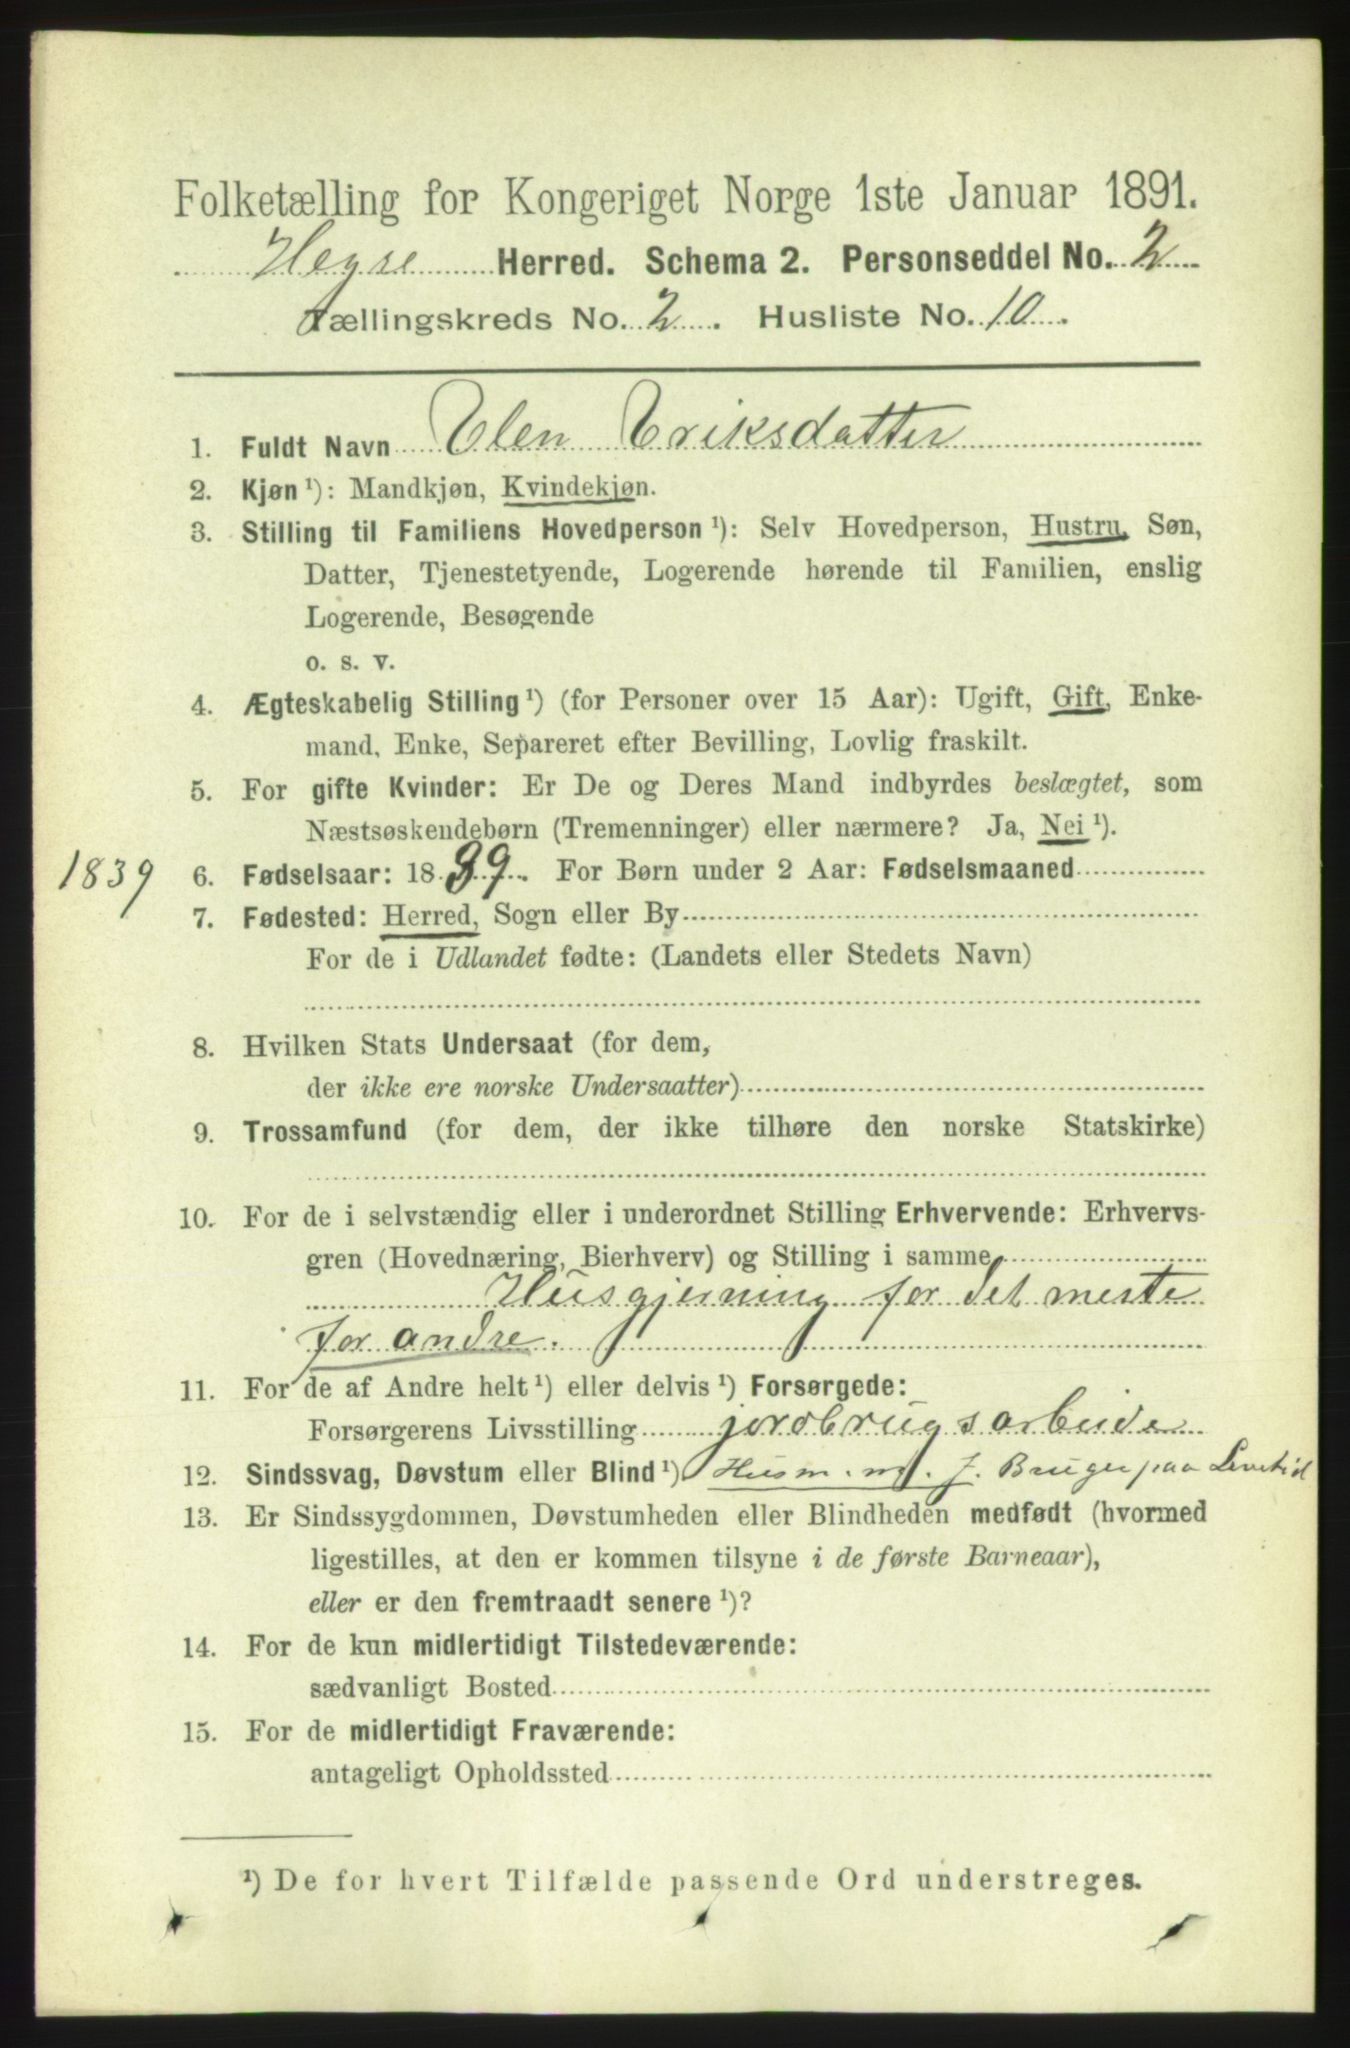 Folketælling for Kongeriget Norge 1ste Januar 1891.
Hegre Herred. Schema 2. Personseddel No. 2
Tællingskreds No. 2. Husliste No. 10.
1. Fuldt Navn Elen Eriksdatter
2. Kjøn ¹): Mandkjøn, Kvindekjøn.
3. Stilling til Familiens Hovedperson ¹): Selv Hovedperson, Hustru, Søn,
Datter, Tjenestetyende, Logerende hørende til Familien, enslig
Logerende, Besøgende
o. s. v.
4. Ægteskabelig Stilling ¹) (for Personer over 15 Aar): Ugift, Gift, Enke-
mand, Enke, Separeret efter Bevilling, Lovlig fraskilt.
5. For gifte Kvinder: Er De og Deres Mand indbyrdes beslægtet, som
Næstsøskendebørn (Tremenninger) eller nærmere? Ja, Nei ¹).
1839 6. Fødselsaar: 1839. For Børn under 2 Aar: Fødselsmaaned
7. Fødested: Herred, Sogn eller By
For de i Udlandet fødte: (Landets eller Stedets Navn)
8. Hvilken Stats Undersaat (for dem,
der ikke ere norske Undersaatter)
9. Trossamfund (for dem, der ikke tilhøre den norske Statskirke)
10. For de i selvstændig eller i underordnet Stilling Erhvervende: Erhvervs-
gren (Hovednæring, Bierhverv) og Stilling i samme
Husgjerning for det meste
for andre.
11. For de af Andre helt ¹) eller delvis ¹) Forsørgede:
Forsørgerens Livsstilling jordbrugsarbeide
12. Sindssvag, Døvstum eller Blind ¹) Husm. m. J. Bruger paa Livstid
13. Er Sindssygdommen, Døvstumheden eller Blindheden medfødt (hvormed
ligestilles, at den er kommen tilsyne i de første Barneaar),
eller er den fremtraadt senere ¹)?
14. For de kun midlertidigt Tilstedeværende:
sædvanligt Bosted
15. For de midlertidigt Fraværende:
antageligt Opholdssted
¹) De for hvert Tilfælde passende Ord understreges.